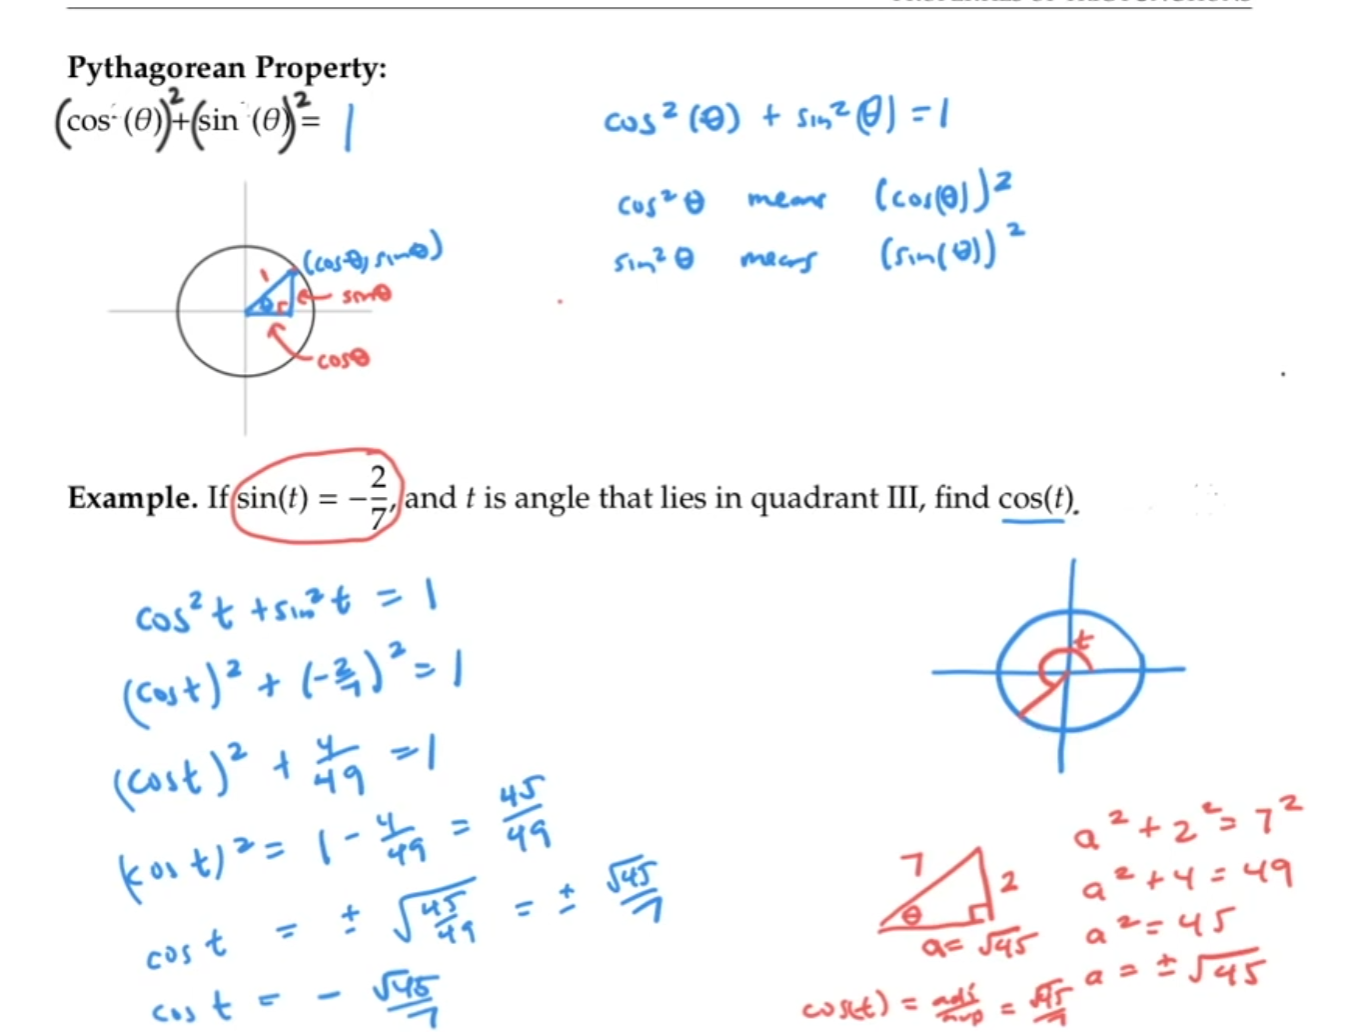 Pythagorean Property:
(cos (θ))²+(sin (θ))²= 1
cos²(θ) + sin²(θ) = 1
cos²θ means (cos(θ))²
sin²θ means (sin(θ))²
(cosθ, sinθ)
1
θ
sinθ
cosθ
Example. If sin(t) = −2/7, and t is angle that lies in quadrant III, find cos(t).
cos²t + sin²t = 1
(cos t)² + (-2/7)² = 1
(cos t)² + 4/49 = 1
(cos t)² = 1 - 4/49 = 45/49
cos t = ± √(45/49) = ± √45/7
cos t = - √45/7
t
7
2
θ
a = √45
a² + 2² = 7²
a² + 4 = 49
a² = 45
a = ± √45
cos(t) = adj/hyp = √45/7